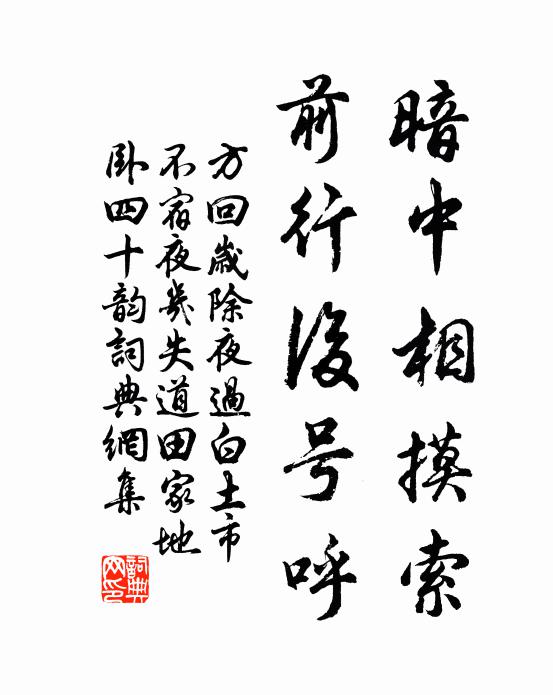 暗中相摸索
前行後号呼
方回歲除夜過白土市
不宿夜幾失道田家地
卧四十韵詞典網集
詞典網印